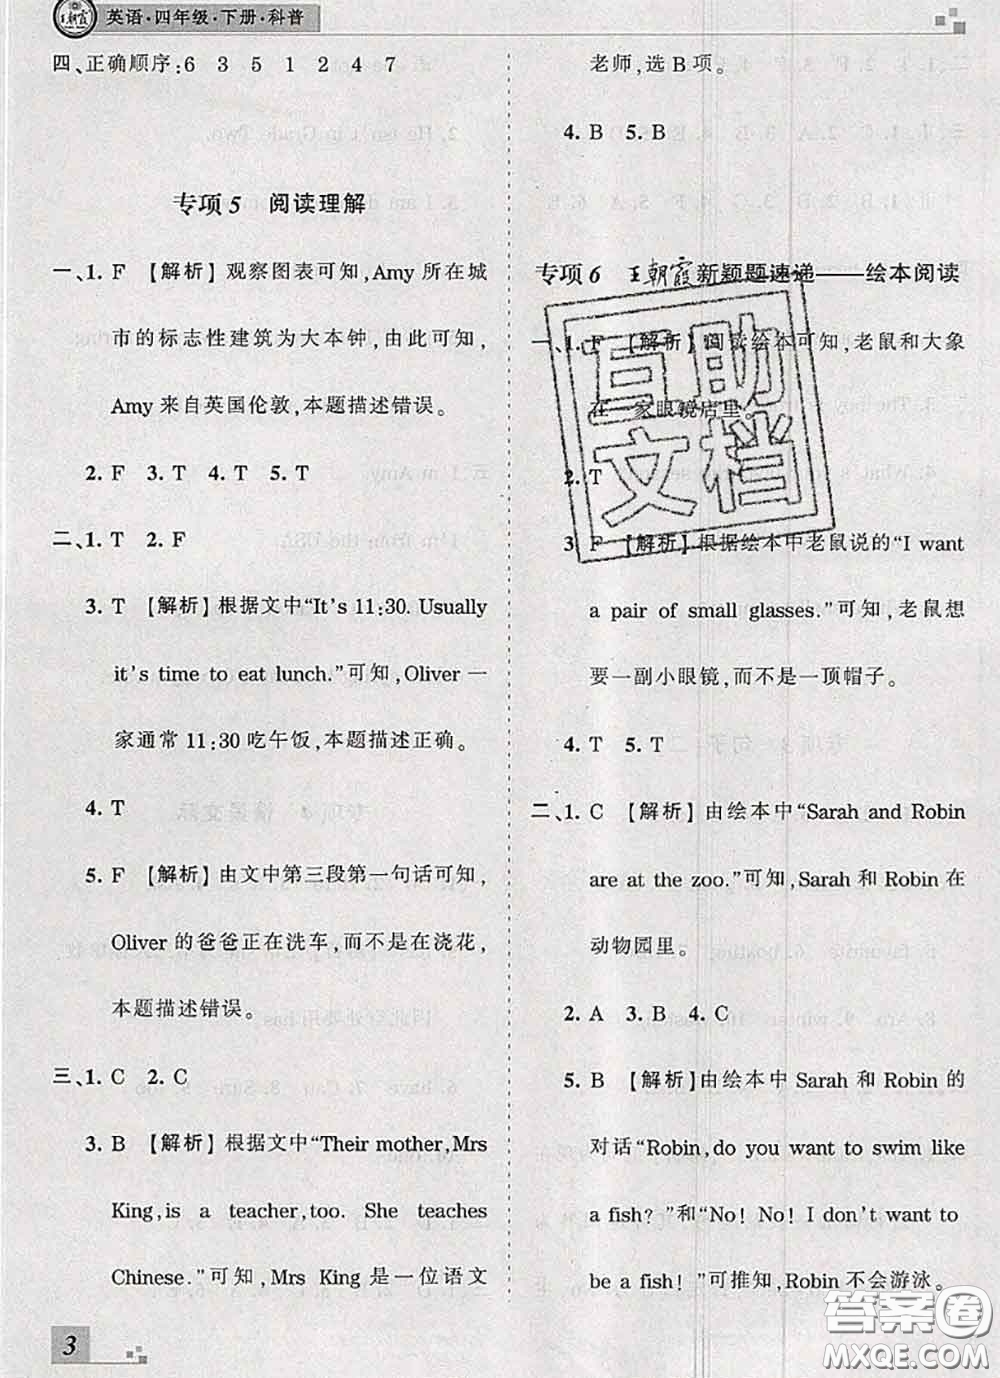 王朝霞
英语·四年级·下册·科普
四、正确顺序:6 3 5 1 2 4 7
专项5 阅读理解
一、1. F 【解析】观察图表可知,Amy 所在城
市的标志性建筑为大本钟,由此可知,
Amy 来自英国伦敦,本题描述错误。
2. F 3. T 4. T 5. T
二、1. T 2. F
3. T 【解析】根据文中“It's 11:30. Usually
it's time to eat lunch.”可知,Oliver 一
家通常 11:30 吃午饭,本题描述正确。
4. T
5. F 【解析】由文中第三段第一句话可知,
Oliver 的爸爸正在洗车,而不是在浇花,
本题描述错误。
三、1. C 2. C
3. B 【解析】根据文中“Their mother,Mrs
King,is a teacher,too. She teaches
Chinese.”可知,Mrs King 是一位语文
老师,选 B 项。
4. B 5. B
专项6 王朝霞新题题速递——绘本阅读
一、1. F 【解析】阅读绘本可知,老鼠和大象
在一家眼镜店里。
2. T
3. F 【解析】根据绘本中老鼠说的“I want
a pair of small glasses.”可知,老鼠想
要一副小眼镜,而不是一顶帽子。
4. T 5. T
二、1. C 【解析】由绘本中“Sarah and Robin
are at the zoo.”可知,Sarah 和 Robin 在
动物园里。
2. A 3. B 4. C
5. B 【解析】由绘本中 Sarah 和 Robin 的
对话“Robin,do you want to swim like
a fish?”和“No! No! I don't want to
be a fish!”可推知,Robin 不会游泳。
互助
文档
3
答案圈
MXQE.COM